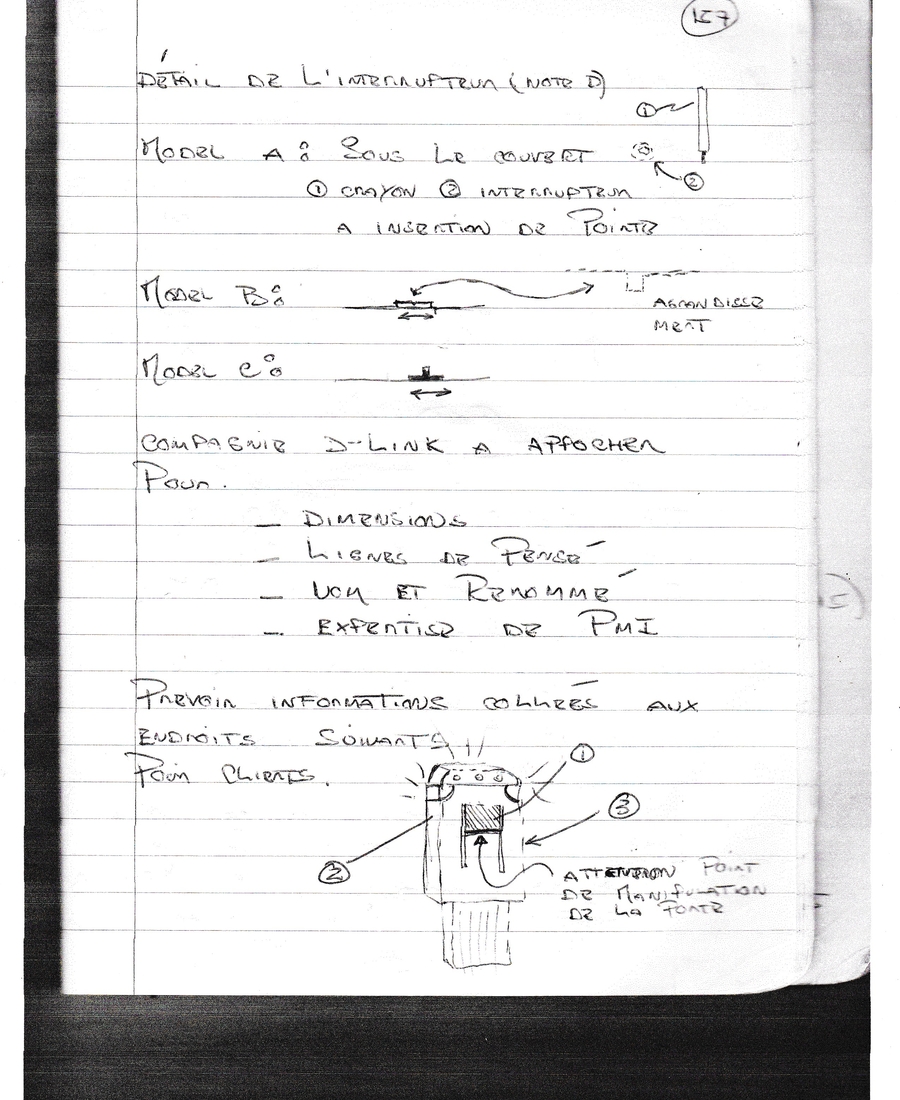 157
DÉTAIL DE L'INTERRUPTEUR (NOTE D)
①
MODEL A : SOUS LE COUVERT
②
① CRAYON ② INTERRUPTEUR
A INSERTION DE POINTE
MODEL B :
AGRANDISSE
MENT
MODEL C :
COMPAGNIE D-LINK A APPOCHER
POUR.
— DIMENSIONS
— LIGNES DE PENSÉ
— NOM ET RENOMMÉ
— EXPERTISE DE PMI
PREVOIR INFORMATIONS COLLÉES AUX
ENDROITS SUIVANTS
POUR CLIENTS.
①
③
②
ATTENTION POINT
DE MANIPULATION
DE LA PORTE